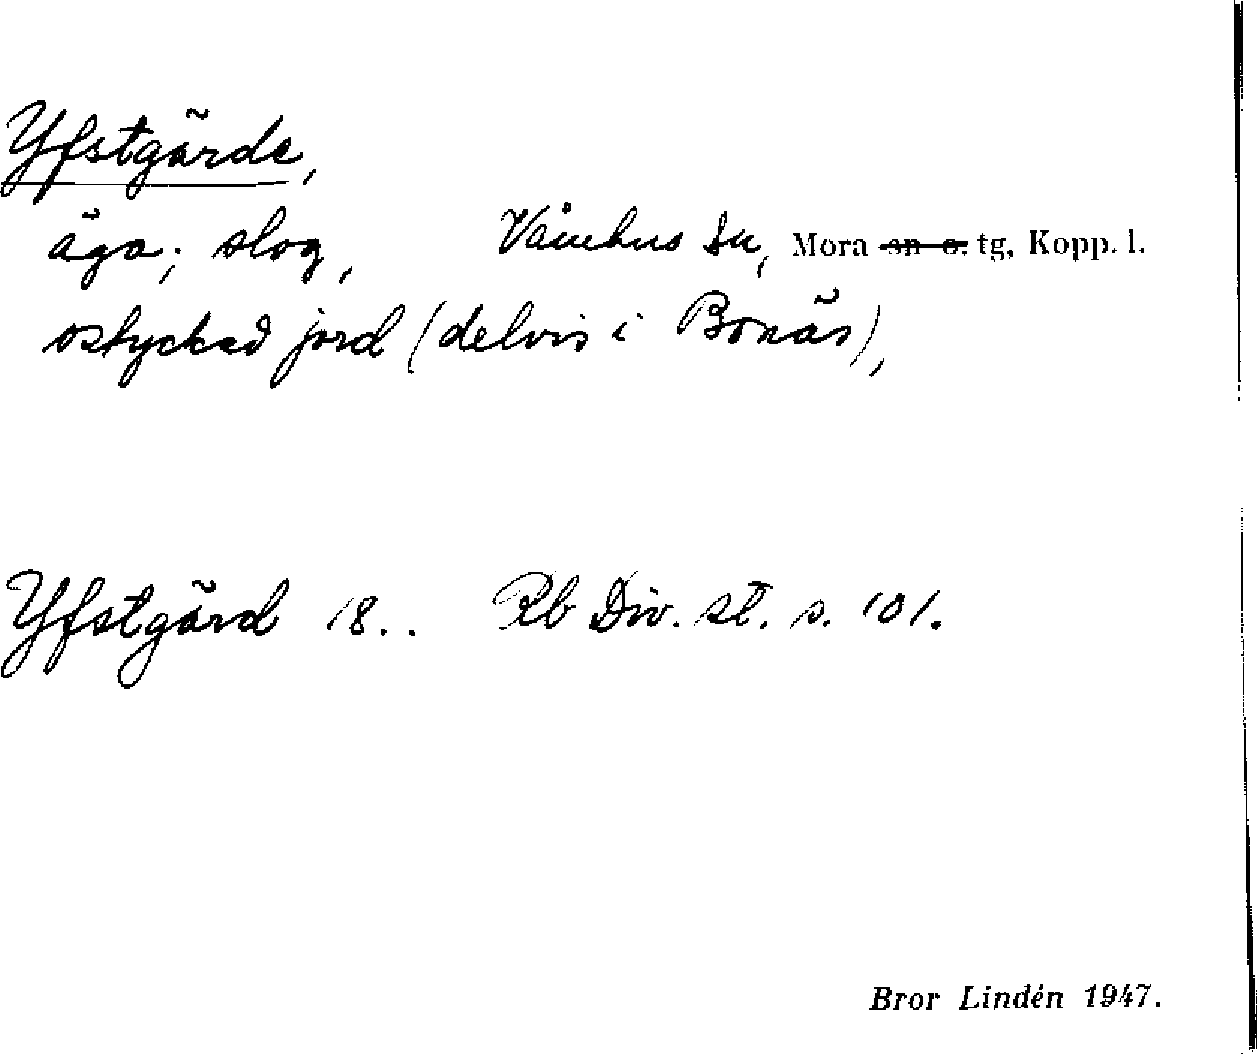 Yfstgärde,
äga; slog, Våmhus sn, Mora sn o. tg, Kopp. l.
ostyckad jord (delvis i Bonäs),
Yfstgärd 18.. Rb Div. st. s. 101.
Bror Lindén 1947.